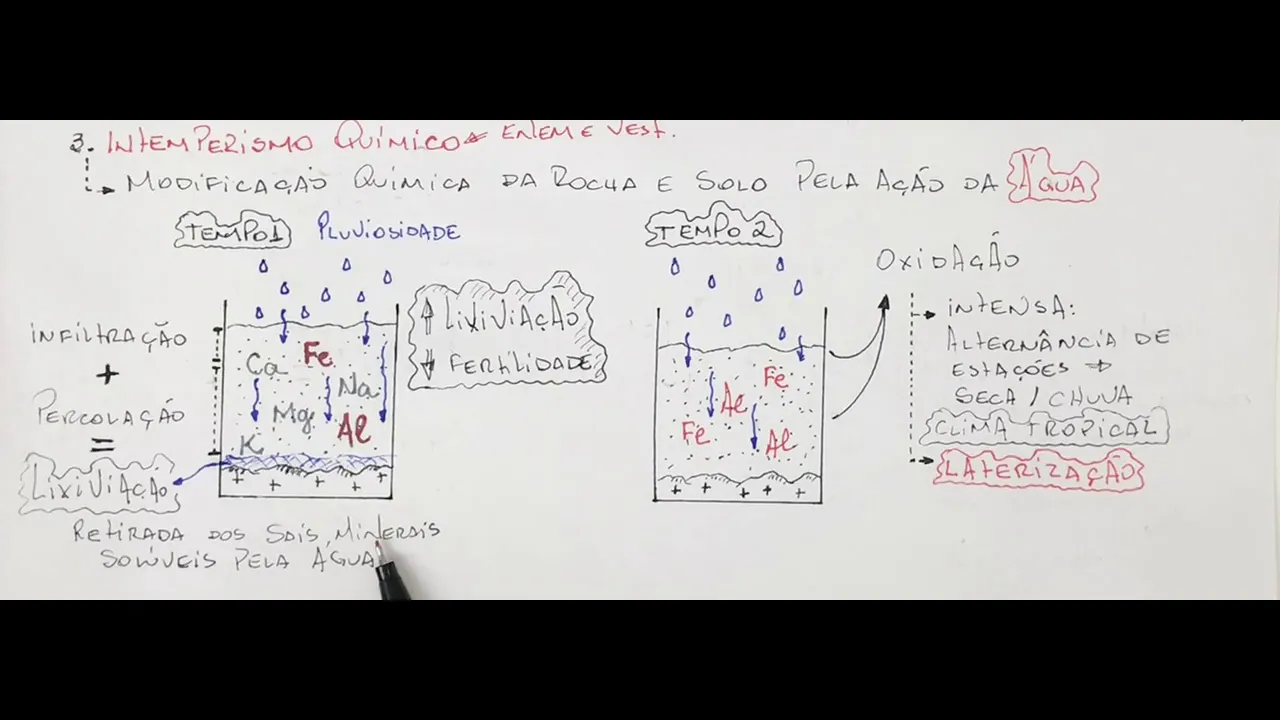 3. INTEMPERISMO QUÍMICO ENEM E VEST.
MODIFICAÇÃO QUÍMICA DA ROCHA E SOLO PELA AÇÃO DA ÁGUA
TEMPO 1 PLUVIOSIDADE
INFILTRAÇÃO
+
PERCOLAÇÃO
=
LIXIVIAÇÃO
Ca Fe
Na
Mg Al
K
+ + + + +
↑ LIXIVIAÇÃO
↓ FERTILIDADE
RETIRADA DOS SAIS, MINERAIS
SOLÚVEIS PELA ÁGUA
TEMPO 2
Fe
Al
Fe Al
+ + + + +
OXIDAÇÃO
INTENSA:
ALTERNÂNCIA DE
ESTAÇÕES →
SECA / CHUVA
CLIMA TROPICAL
LATERIZAÇÃO